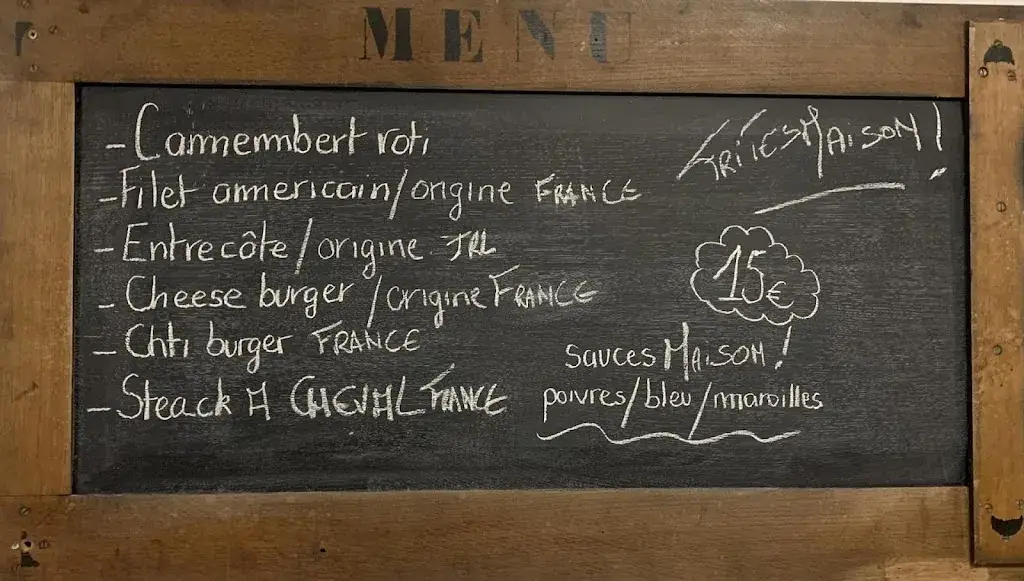 MENU
- Camembert roti
- Filet americain/origine FRANCE
- Entrecôte/origine IRL
- Cheese burger/origine FRANCE
- Chti burger FRANCE
- Steack A CHEVAL FRANCE
FRITES MAISON!
15€
sauces MAISON!
poivres/bleu/maroilles